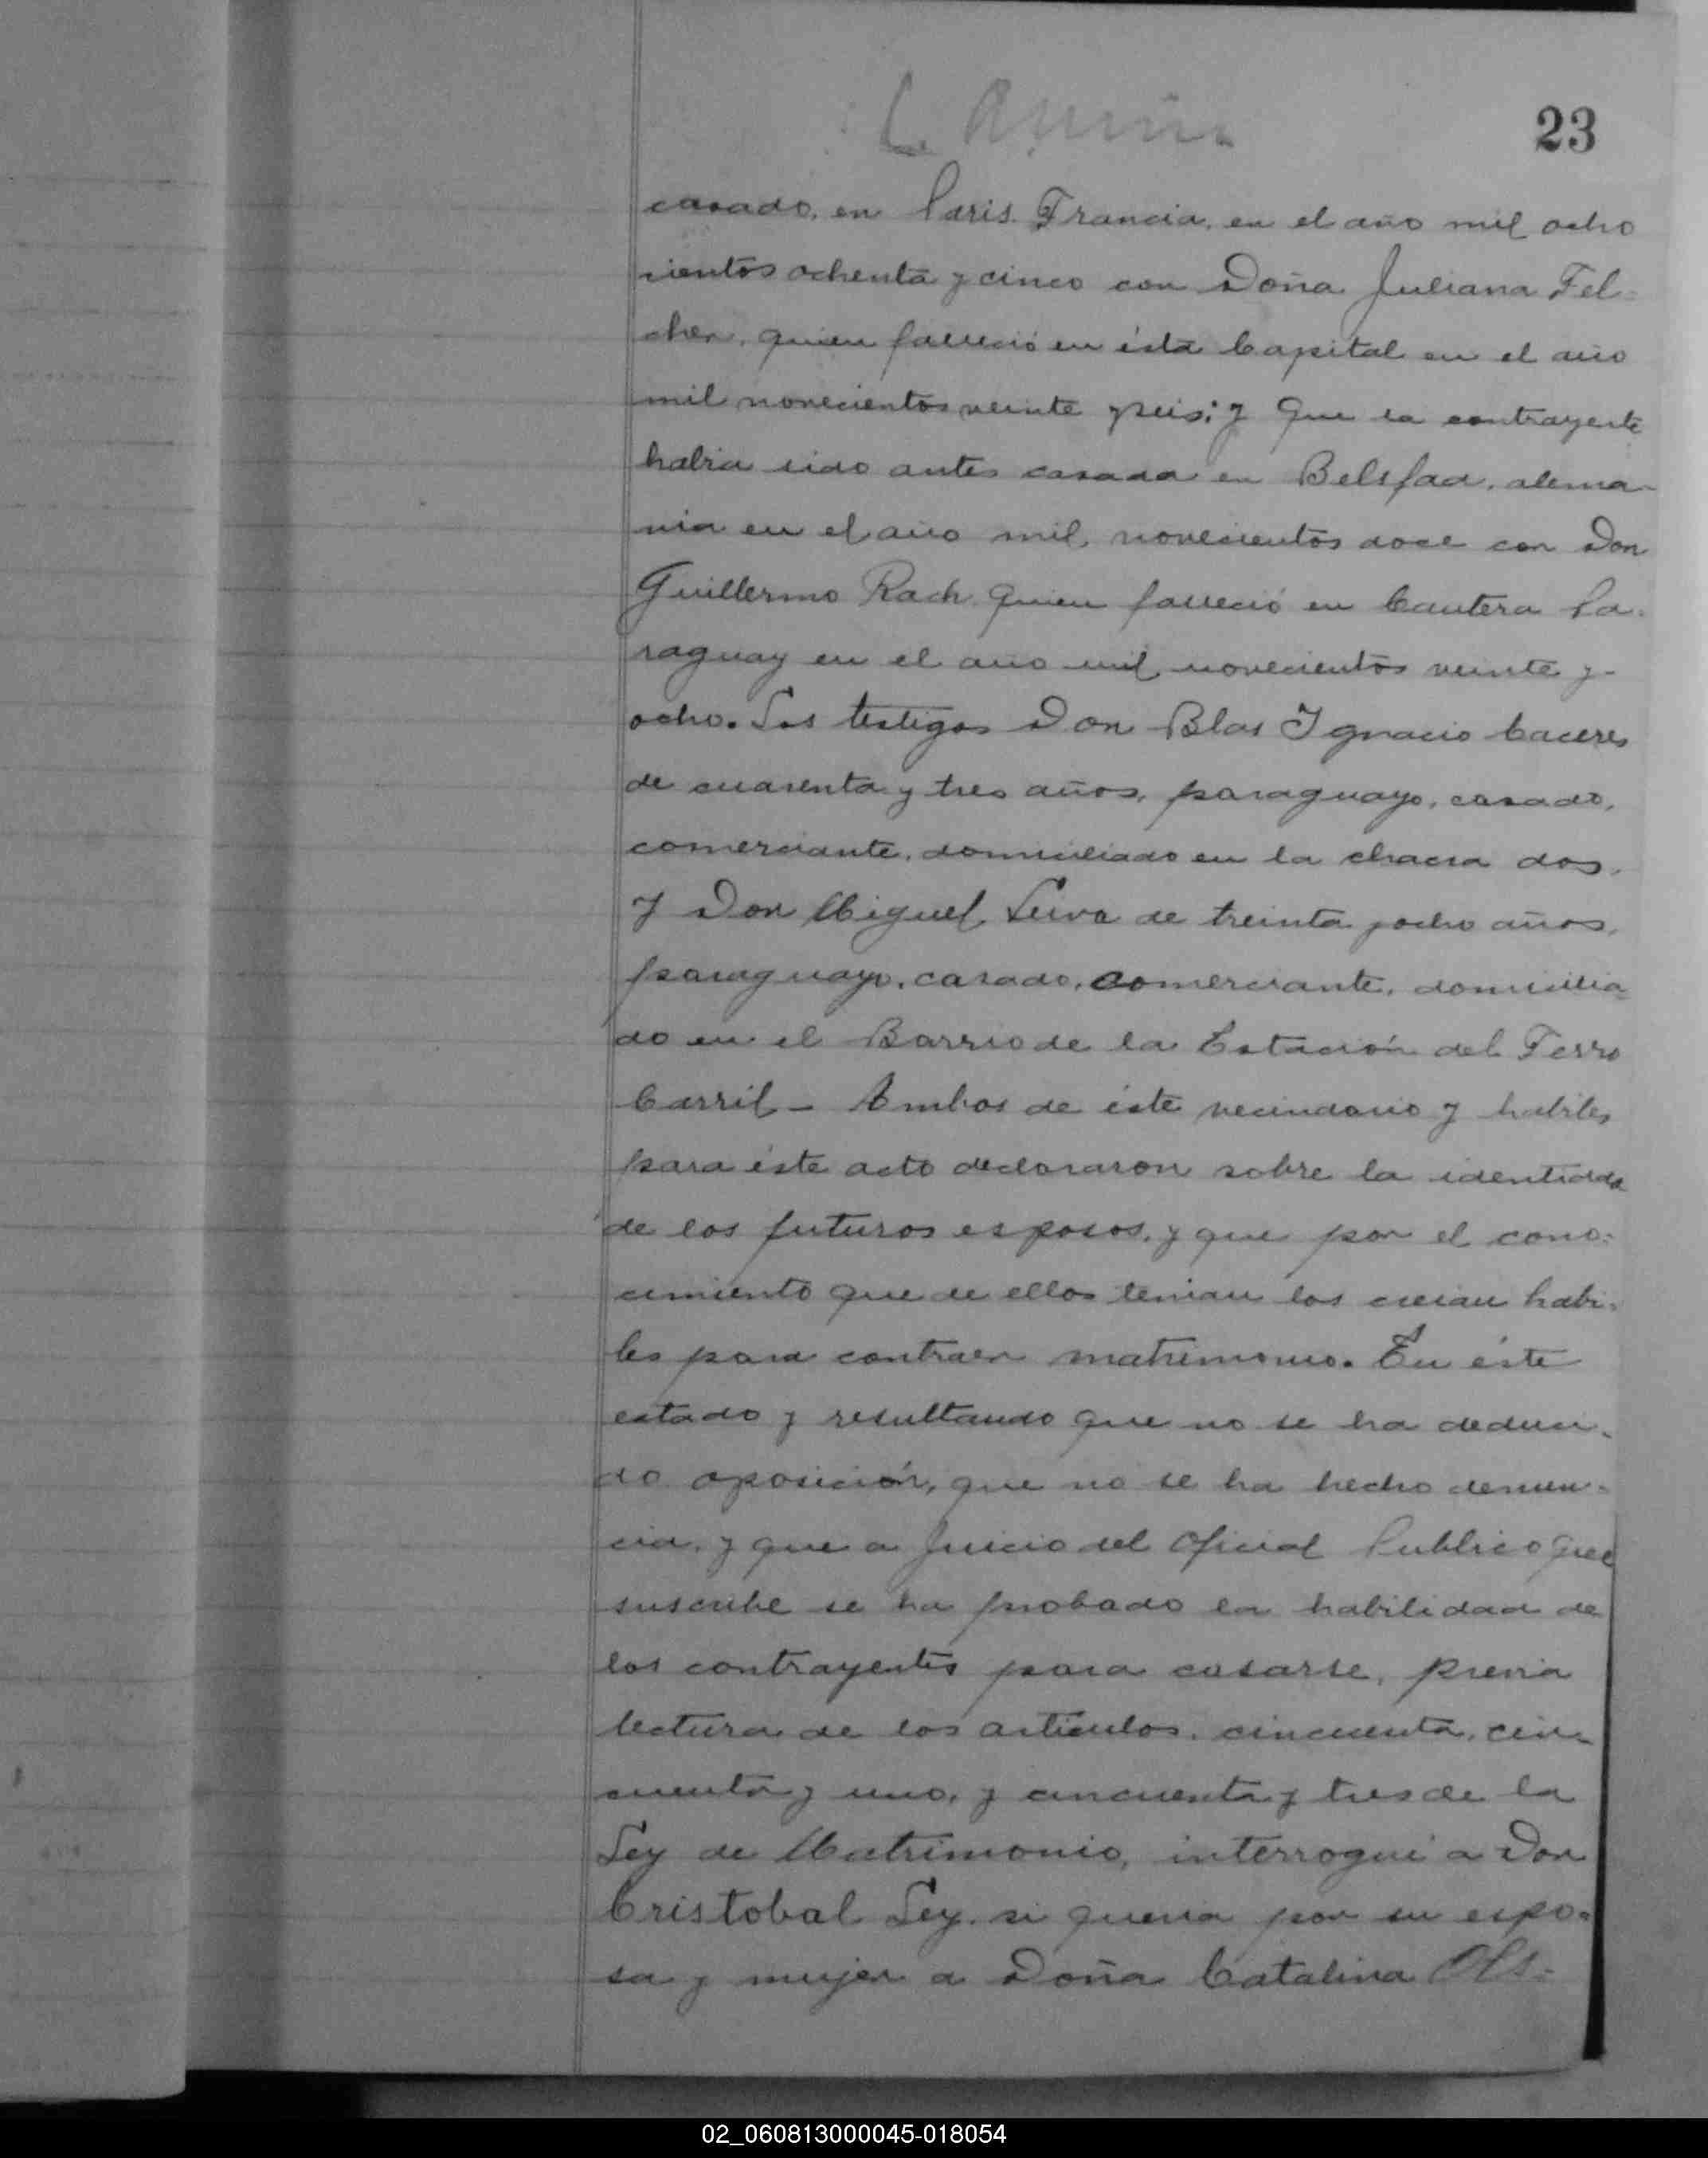 23
casado, en Paris. Francia, en el año mil ocho
cientos ochenta y cinco con Doña Juliana Fel-
cher, quien falleció en ésta Capital en el año
mil novecientos veinte y seis; y que la contrayente
habia sido antes casada en Belsfad, alema-
nia en el año mil novecientos doce con Don
Guillermo Rach quien falleció en Cantera Pa-
raguay en el año mil novecientos veinte y
ocho. Los testigos Don Blas Ignacio Caceres
de cuarenta y tres años, paraguayo, casado,
comerciante, domiciliado en la chacra dos,
y Don Miguel Leiva de treinta y ocho años,
paraguayo, casado, comerciante, domicilia-
do en el Barrio de la Estación del Ferro
Carril - Ambos de éste vecindario y habiles
para éste acto declararon sobre la identidad
de los futuros esposos, y que por el cono-
cimiento que de ellos tenian los creian habi-
les para contraer matrimonio. En éste
estado y resultando que no se ha deduci-
do oposición, que no se ha hecho denun-
cia, y que a juicio del Oficial Publico que
suscribe se ha probado la habilidad de
los contrayentes para casarse, previa
lectura de los articulos, cincuenta, cin-
cuenta y uno, y cincuenta y tres de la
Ley de Matrimonio, interrogué a Don
Cristobal Ley si queria por su espo-
sa y mujer a Doña Catalina Ols-
02_060813000045-018054